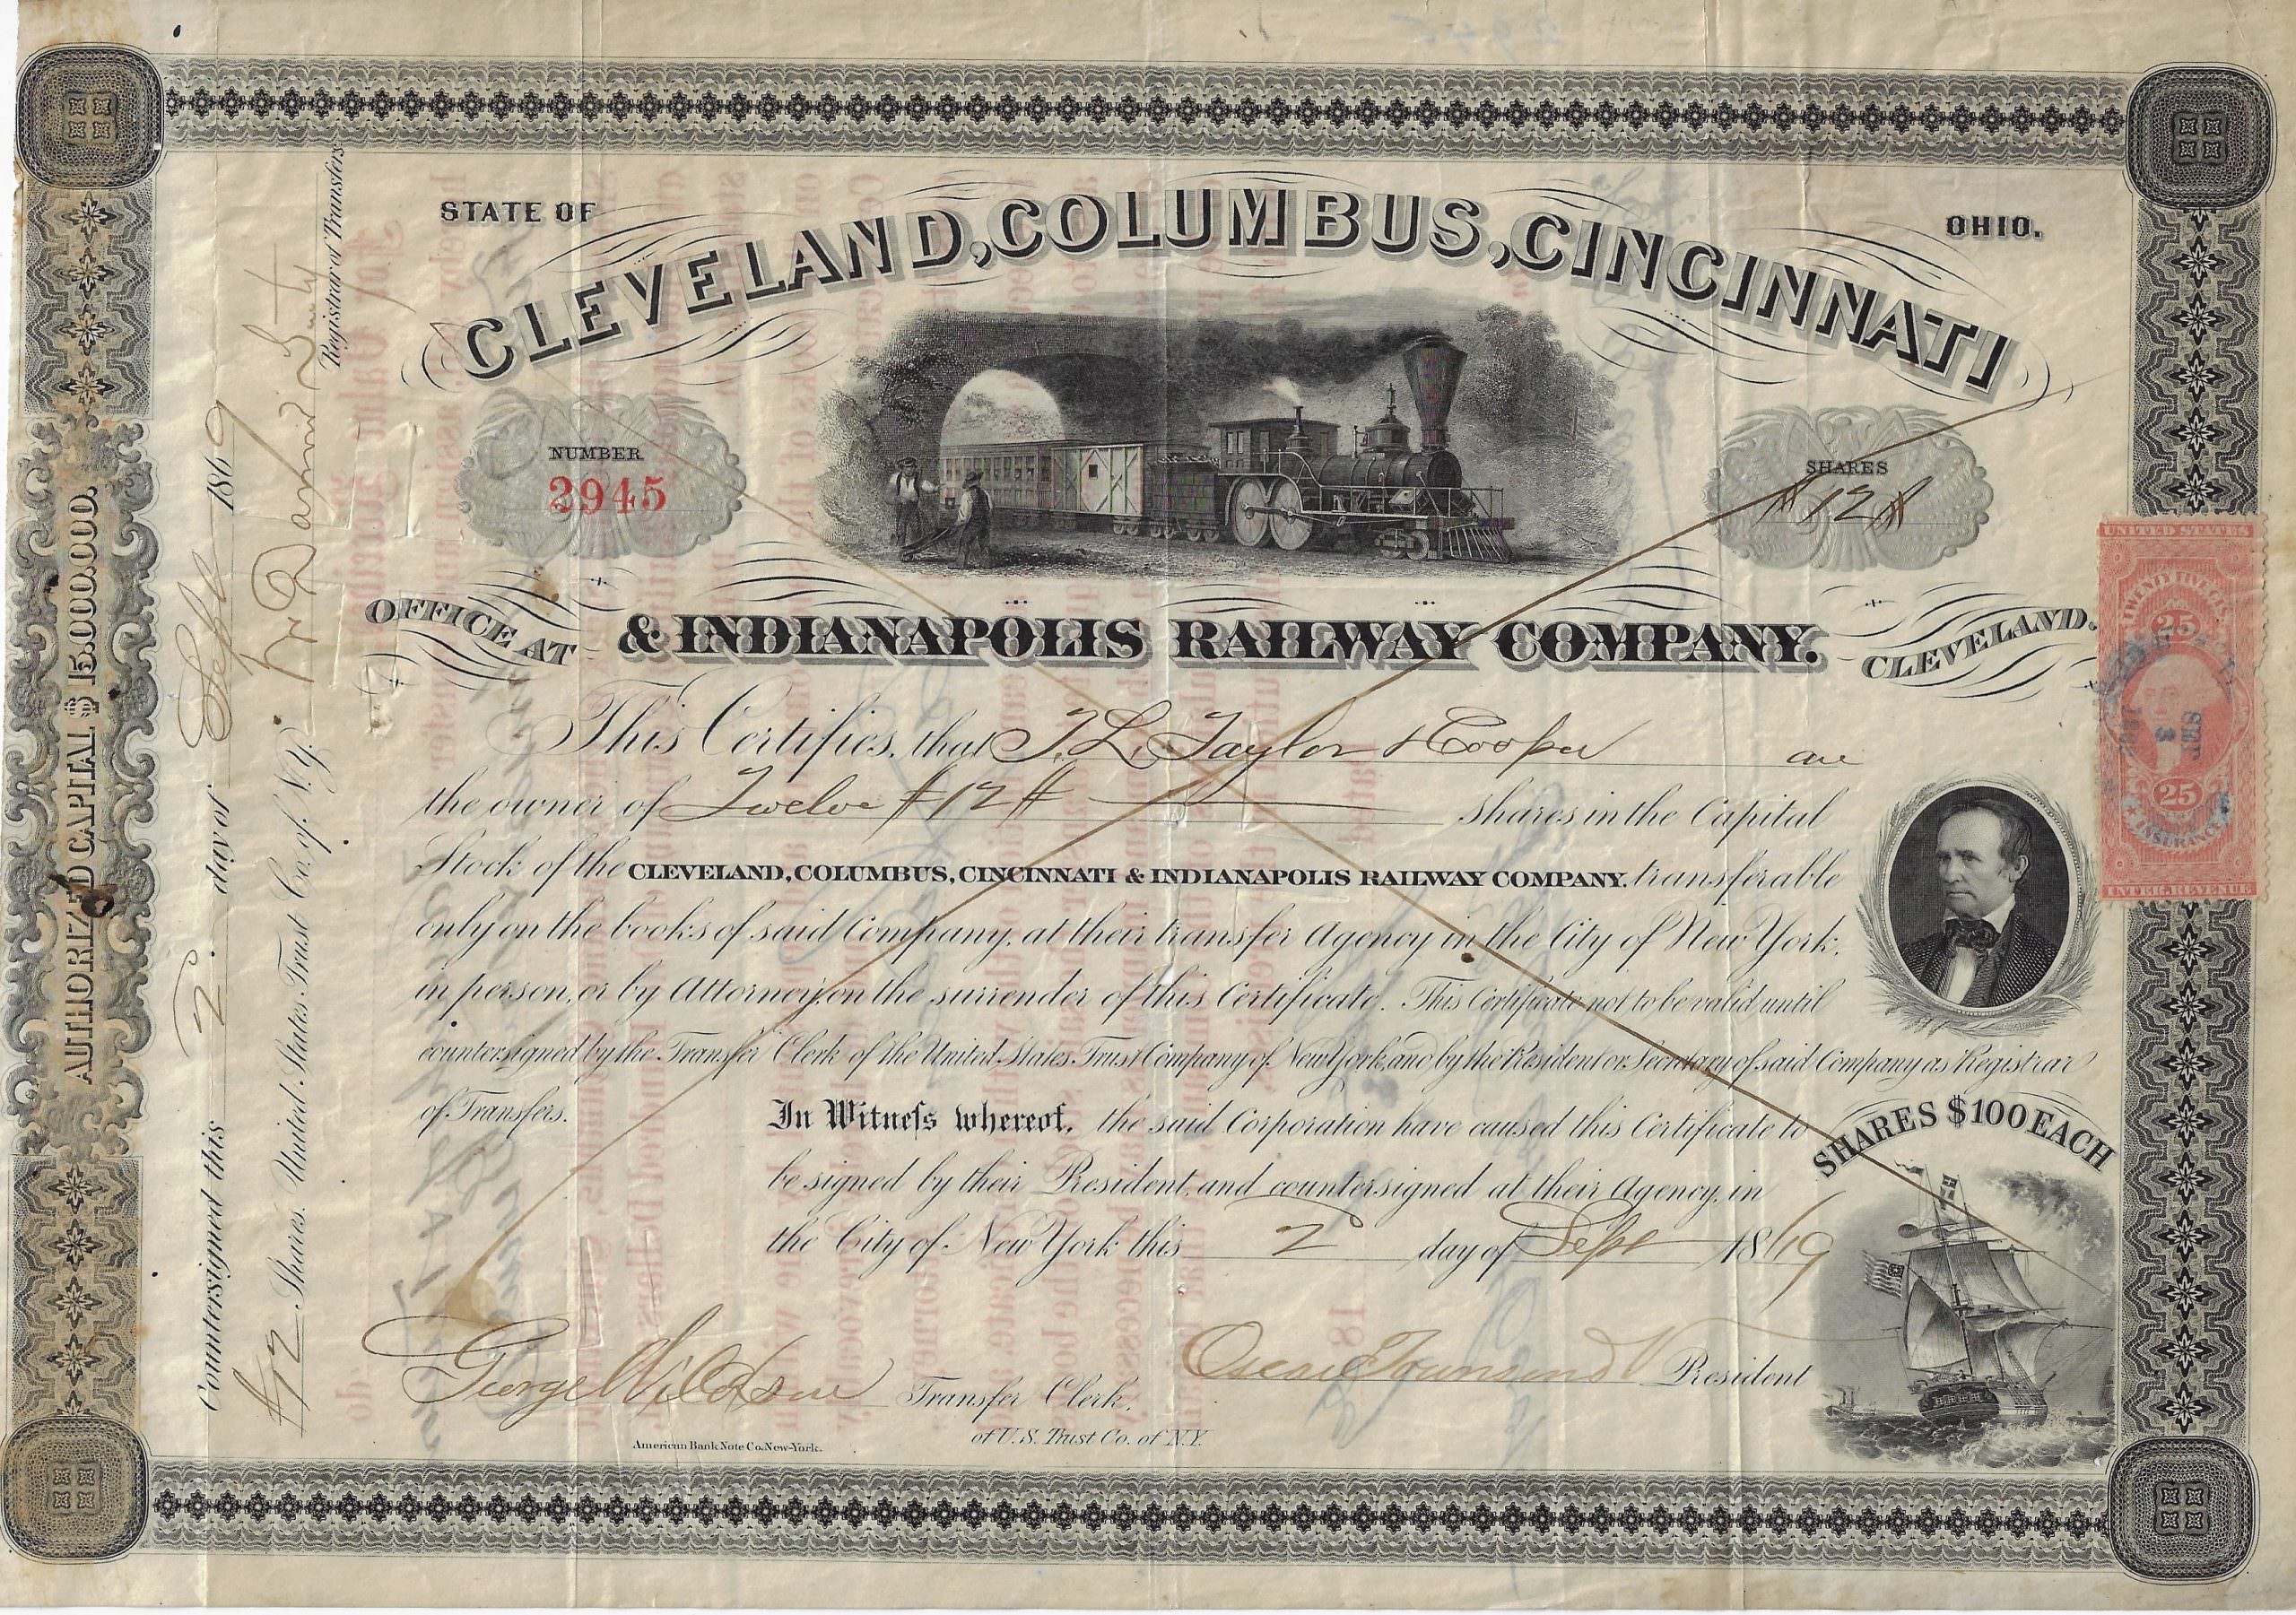 STATE OF
OHIO.
CLEVELAND, COLUMBUS, CINCINNATI
NUMBER
2945
SHARES
#12#
OFFICE AT
& INDIANAPOLIS RAILWAY COMPANY.
CLEVELAND.
This Certifies, that T. L. Taylor & Cooper are
the owner of Twelve #12# shares in the Capital
Stock of the CLEVELAND, COLUMBUS, CINCINNATI & INDIANAPOLIS RAILWAY COMPANY. transferable
only on the books of said Company, at their transfer Agency in the City of New York,
in person, or by Attorney, on the surrender of this Certificate. This Certificate not to be valid until
countersigned by the Transfer Clerk of the United States Trust Company of New York, and by the President or Secretary of said Company as Registrar
of Transfers.
In Witness whereof, the said Corporation have caused this Certificate to
be signed by their President, and countersigned at their Agency, in
the City of New York this 2 day of Sept 1869
SHARES $100 EACH
George Wildson Transfer Clerk.
of U.S. Trust Co. of N.Y.
President
American Bank Note Co. New-York.
AUTHORIZED CAPITAL $15.000.000.
Countersigned this 2 day of Sept 1869
#12 Shares. United States Trust Co. of N.Y.
Registrar of Transfers
UNITED STATES
TWENTY FIVE CENTS
25
SEP
3
25
INSURANCE
INTER. REVENUE